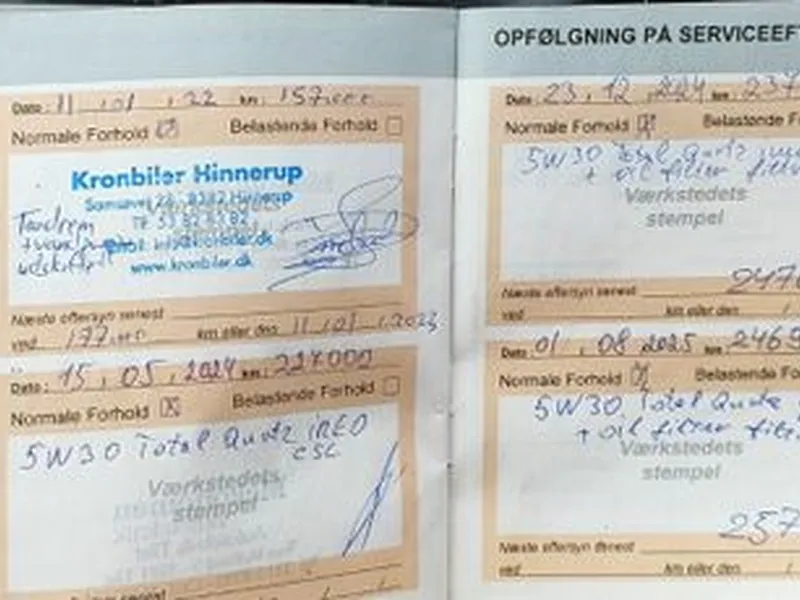 Dato: 11 . 01 . 22 km: 157.000
Normale Forhold Belastende Forhold
Kronbiler Hinnerup
Samsøvej 28, 8382 Hinnerup
Tandrem
www.kronbiler.dk
Næste eftersyn senest
ved 177.000 km eller den 11 / 01 / 2023
Dato: 15 . 05 . 2024 km: 227.000
Normale Forhold Belastende Forhold
5W30 Total Quartz iNEO
Værkstedets
stempel
OPFØLGNING PÅ SERVICEEFT
Dato: 23 . 12 . 2024 km: 237
Normale Forhold Belastende Fo
5W30 Total Quartz
+ oil filter
Værkstedets
stempel
Næste eftersyn senest
ved km eller den
Dato: 01 . 08 2025 km: 2469
Normale Forhold Belastende Fo
5W30 Total Quartz
+ oil filter
Værkstedets
stempel
257
Næste eftersyn senest
ved km eller den